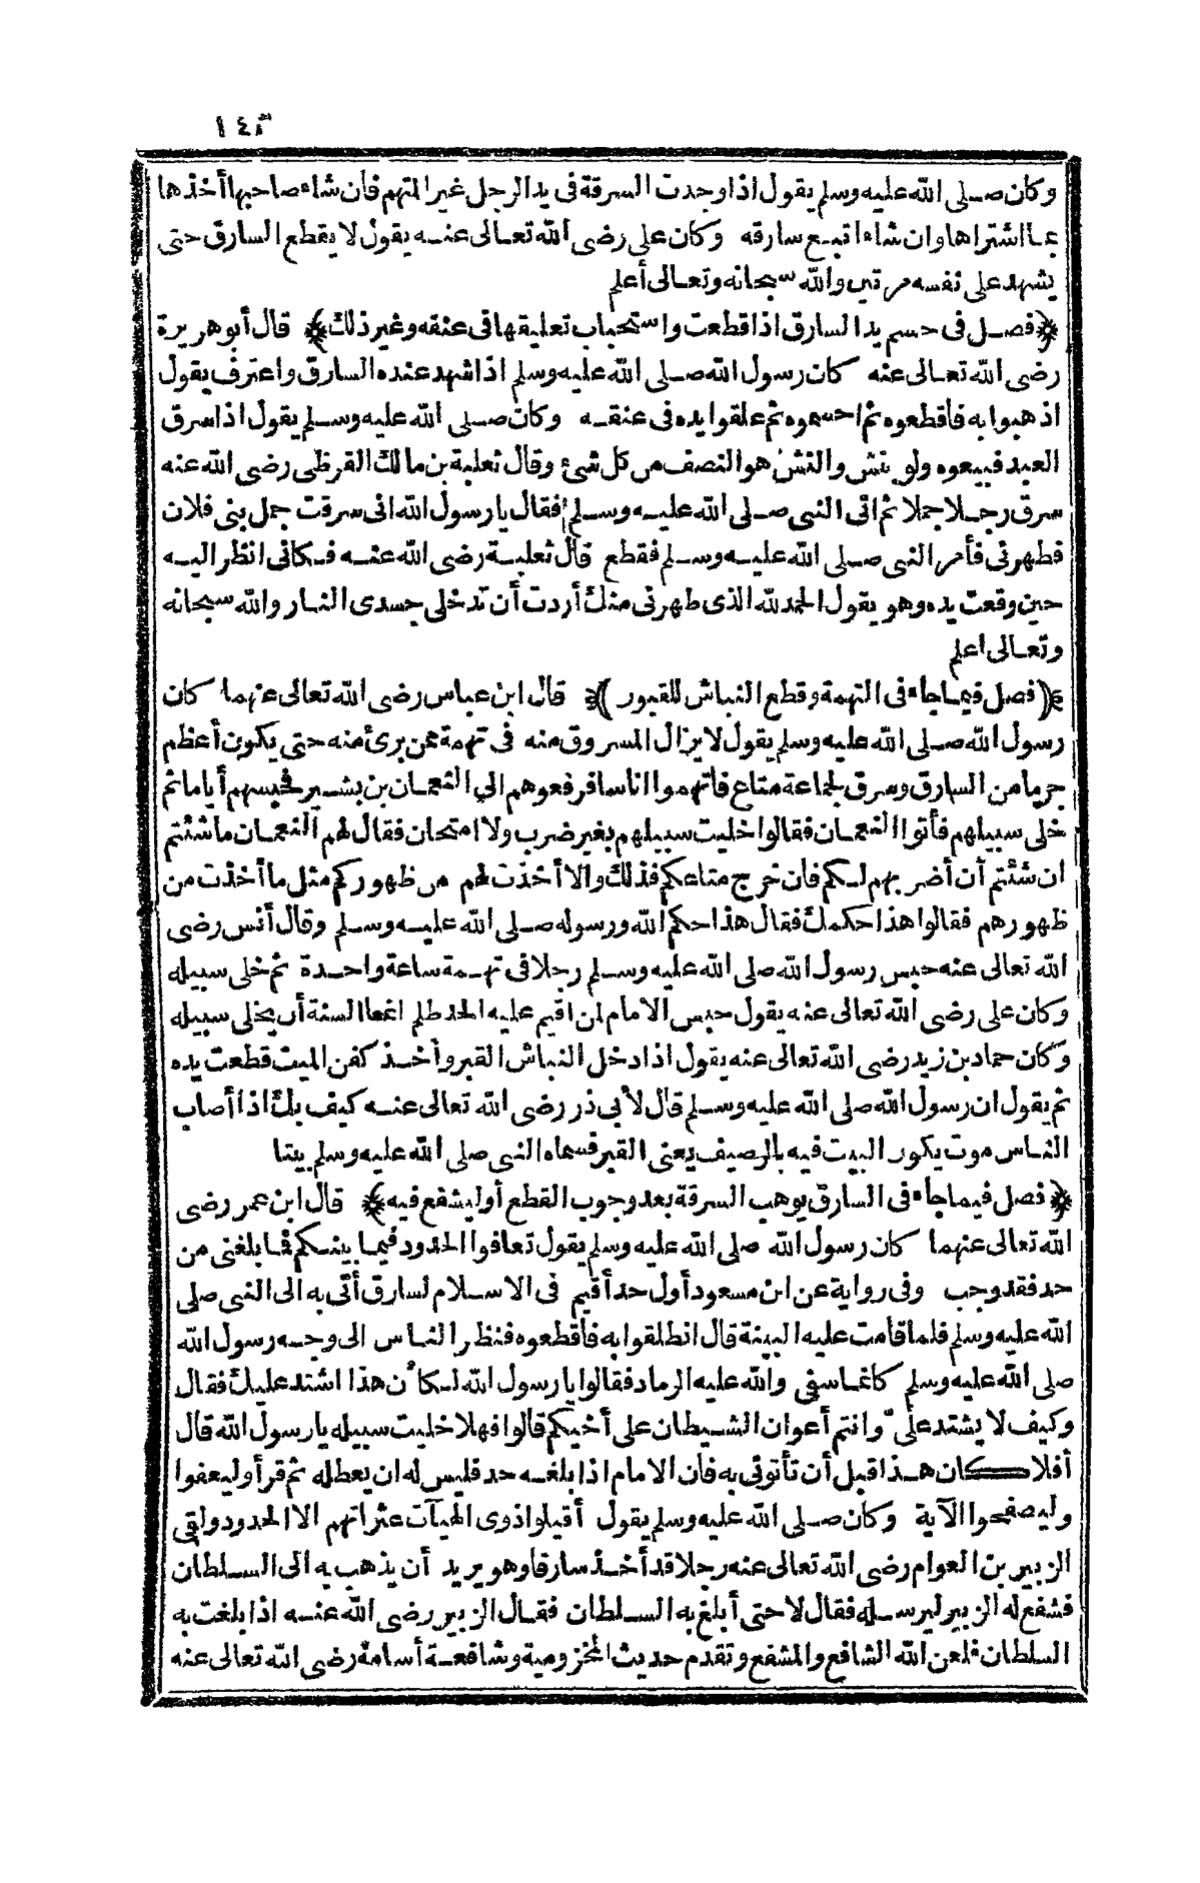 ١٤٣
وكان صلى الله عليه وسلم يقول اذا وجدت السرقة فى يد الرجل غير المتهم فان شاء صاحبها أخذها
بما اشتراها وان شاء اتبع سارقه وكان على رضى الله تعالى عنه يقول لا يقطع السارق حتى
يشهد على نفسه مرتين والله سبحانه وتعالى أعلم
﴿فصل فى حسم يد السارق اذا قطعت واستحباب تعليقها فى عنقه وغير ذلك﴾ قال أبو هريرة
رضى الله تعالى عنه كان رسول الله صلى الله عليه وسلم اذا شهد عنده السارق واعترف يقول
اذهبوا به فاقطعوه ثم احسموه ثم علقوا يده فى عنقه وكان صلى الله عليه وسلم يقول اذا سرق
العبد فبيعوه ولو بنش والنش هو النصف من كل شئ وقال ثعلبة بن مالك القرظى رضى الله عنه
سرق رجلا جملا ثم اتى النبى صلى الله عليه وسلم فقال يا رسول الله انى سرقت جمل بنى فلان
فطهرنى فأمر النبى صلى الله عليه وسلم فقطع قال ثعلبة رضى الله عنه فكانى انظر اليه
حين وقعت يده وهو يقول الحمد لله الذى طهرنى منك أردت أن تدخلى جسدى النار والله سبحانه
وتعالى اعلم
﴿فصل فيما جاء فى التهمة وقطع النباش للقبور﴾ قال ابن عباس رضى الله تعالى عنهما كان
رسول الله صلى الله عليه وسلم يقول لا يزال المسروق منه فى تهمة ممن برئ منه حتى يكون أعظم
جرما من السارق وسرق لجماعة متاع فاتهموا اناسا فرفعوهم الى النعمان بن بشير فحبسهم أياما ثم
خلى سبيلهم فأتوا النعمان فقالوا خليت سبيلهم بغير ضرب ولا امتحان فقال لهم النعمان ما شئتم
ان شئتم أن أضربهم لكم فان خرج متاعكم فذلك والا أخذت لهم من ظهوركم مثل ما أخذت من
ظهورهم فقالوا هذا حكمك فقال هذا حكم الله ورسوله صلى الله عليه وسلم وقال أنس رضى
الله تعالى عنه حبس رسول الله صلى الله عليه وسلم رجلا فى تهمة ساعة واحدة ثم خلى سبيله
وكان على رضى الله تعالى عنه يقول حبس الامام لمن اقيم عليه الحد ظلم انما السنة أن يخلى سبيله
وكان حماد بن زيد رضى الله تعالى عنه يقول اذا دخل النباش القبر وأخذ كفن الميت قطعت يده
ثم يقول ان رسول الله صلى الله عليه وسلم قال لأبى ذر رضى الله تعالى عنه كيف بك اذا أصاب
الناس موت يكون البيت فيه بالرصيف يعنى القبر فسماه النبى صلى الله عليه وسلم بيتا
﴿فصل فيما جاء فى السارق يوهب السرقة بعد وجوب القطع أو ليشفع فيه﴾ قال ابن عمر رضى
الله تعالى عنهما كان رسول الله صلى الله عليه وسلم يقول تعافوا الحدود فيما بينكم فما بلغنى من
حد فقد وجب وفى رواية عن ابن مسعود أول حد أقيم فى الاسلام لسارق أتى به الى النبى صلى
الله عليه وسلم فلما قامت عليه البينة قال انطلقوا به فاقطعوه فنظر الناس الى وجه رسول الله
صلى الله عليه وسلم كانما سفى والله عليه الرماد فقالوا يا رسول الله لكأن هذا اشتد عليك فقال
وكيف لا يشتد علىّ وانتم أعوان الشيطان على أخيكم قالوا فهلا خليت سبيله يا رسول الله قال
أفلا كان هذا قبل أن تأتونى به فان الامام اذا بلغه حد فليس له ان يعطله ثم قرأ وليعفوا
وليصفحوا الآية وكان صلى الله عليه وسلم يقول أقيلوا ذوى الهيآت عثراتهم الا الحدود ولقى
الزبير بن العوام رضى الله تعالى عنه رجلا قد أخذ سارقا وهو يريد أن يذهب به الى السلطان
فشفع له الزبير ليرسله فقال لا حتى أبلغ به السلطان فقال الزبير رضى الله عنه اذا بلغت به
السلطان فلعن الله الشافع والمشفع وتقدم حديث المخزومية وشافعة أسامة رضى الله تعالى عنه